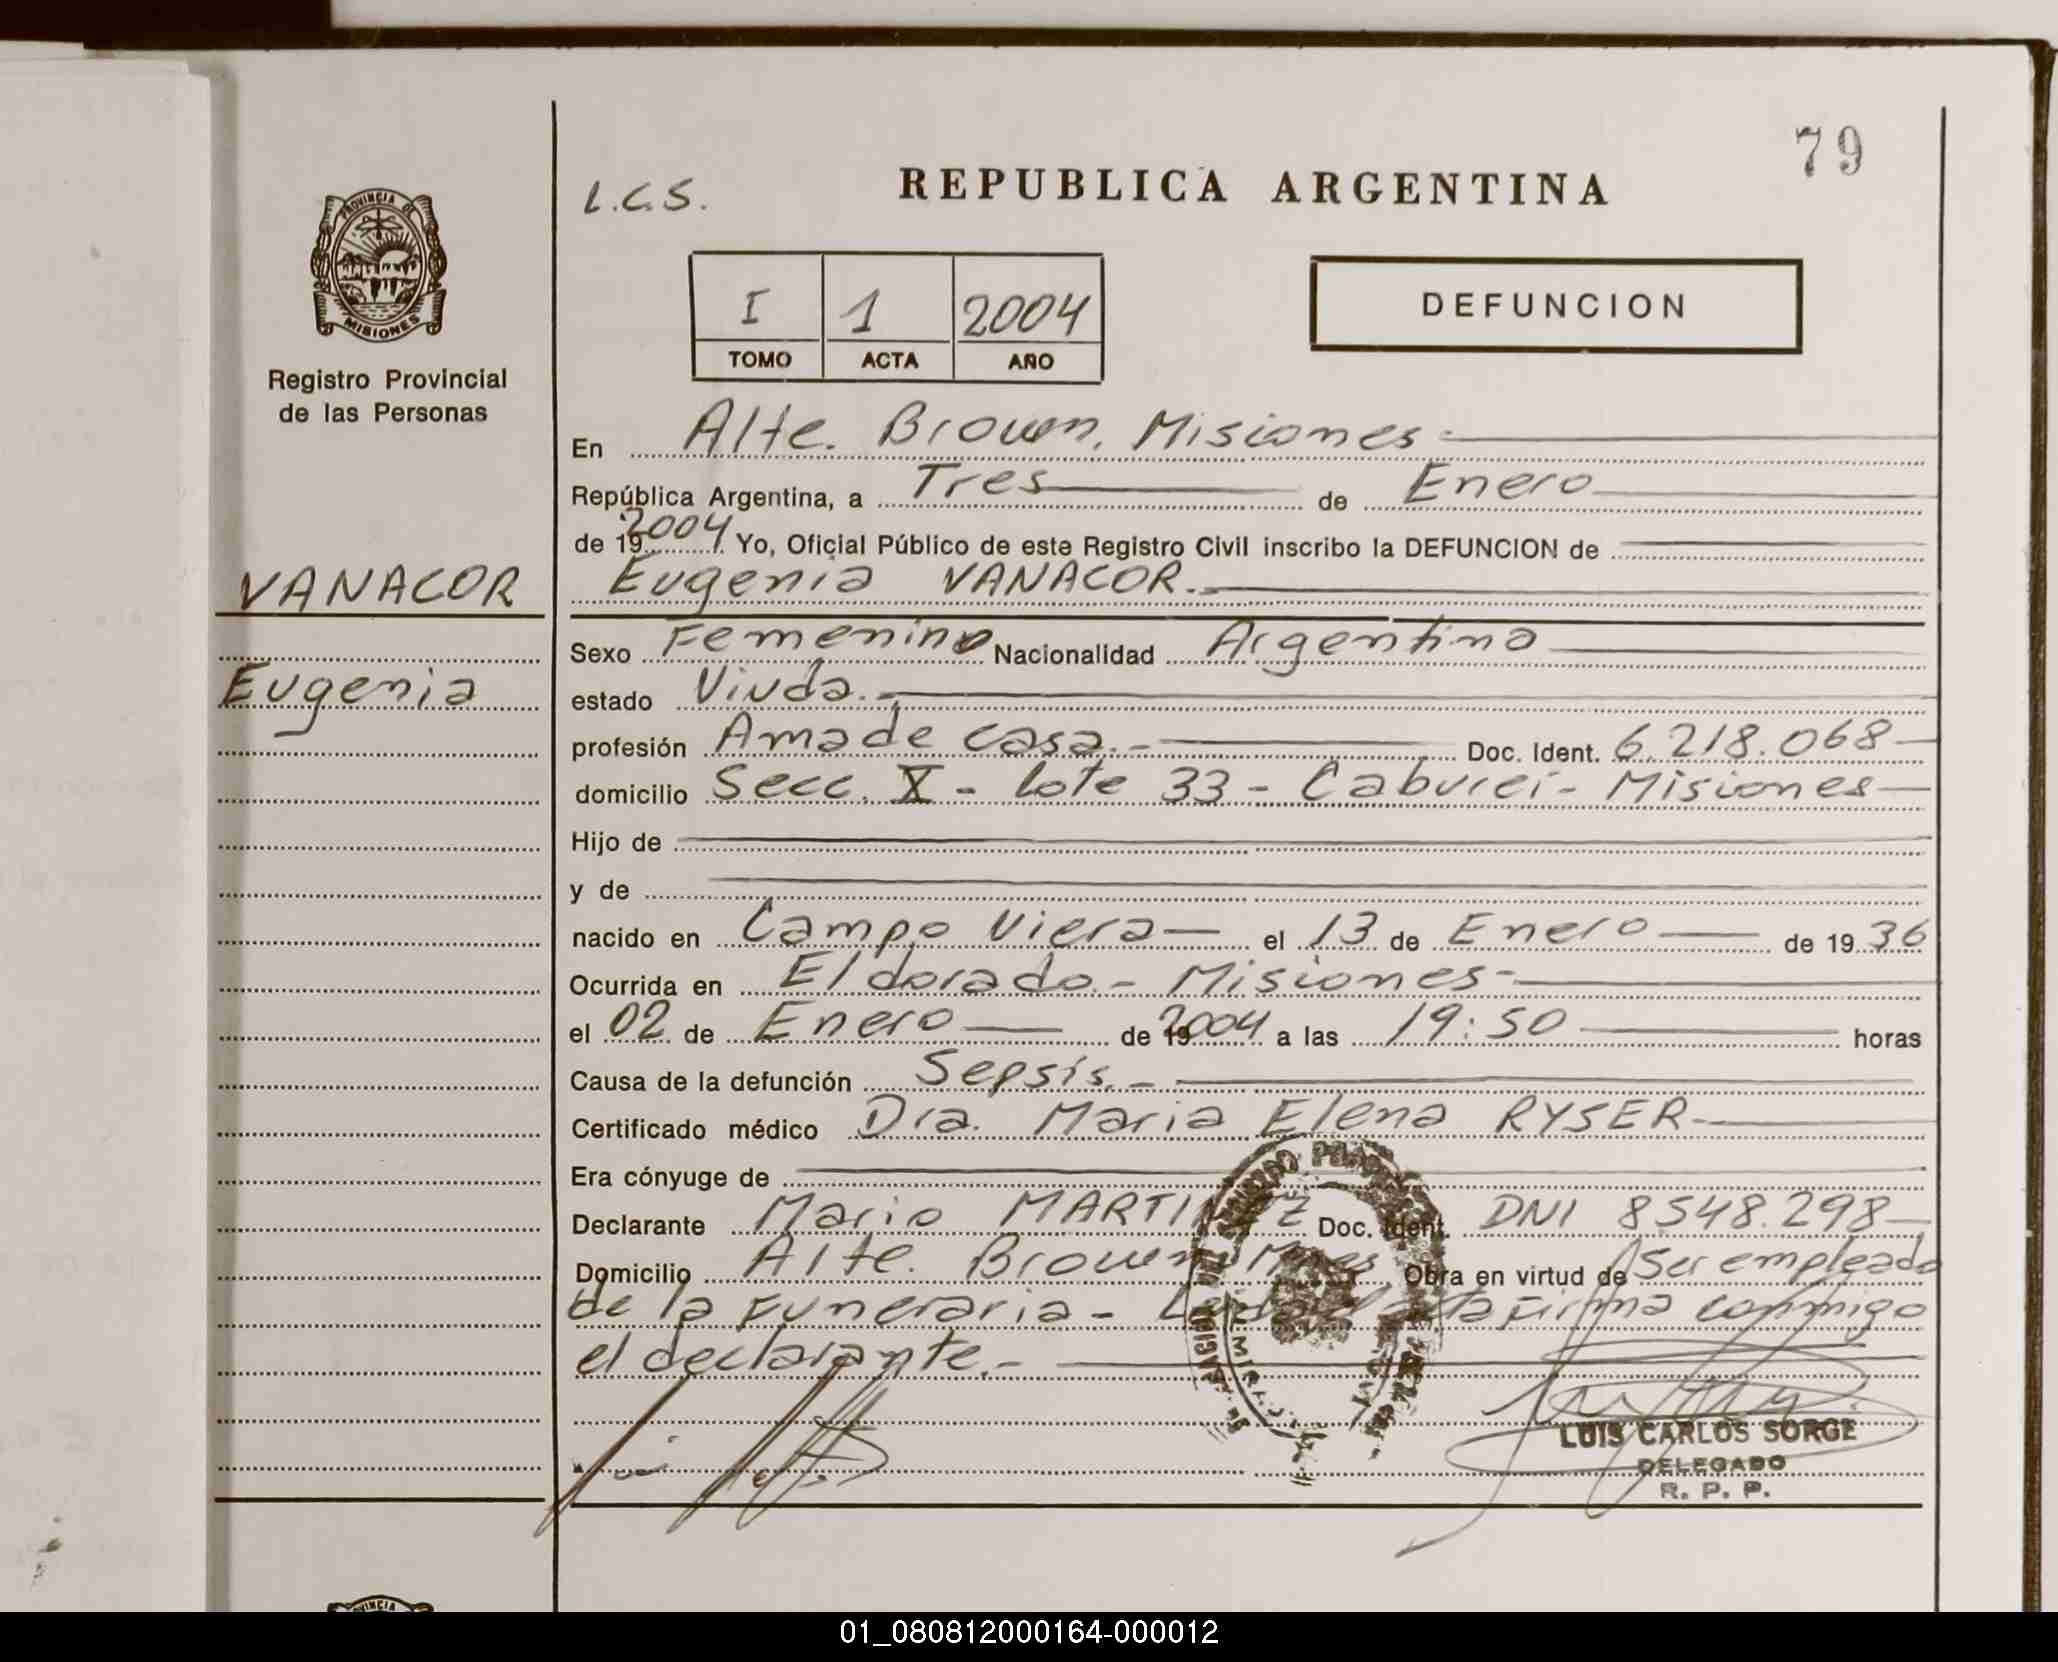 79
L.C.S.
REPUBLICA ARGENTINA
PROVINCIA DE
MISIONES
Registro Provincial
de las Personas
I 1 2004
TOMO ACTA AÑO
DEFUNCION
VANACOR
Eugenia
En Alte. Brown, Misiones
República Argentina, a Tres de Enero
de 19 2004 Yo, Oficial Público de este Registro Civil inscribo la DEFUNCION de
Eugenia VANACOR.-
Sexo Femenino Nacionalidad Argentina
estado Viuda.-
profesión Ama de casa.- Doc. Ident. 6.218.068
domicilio Secc. X - Lote 33 - Caburei - Misiones
Hijo de
y de
nacido en Campo Viera el 13 de Enero de 19 36
Ocurrida en Eldorado - Misiones-
el 02 de Enero de 19 2004 a las 19:50 horas
Causa de la defunción Sepsis.-
Certificado médico Dra. Maria Elena RYSER
Era cónyuge de
Declarante Mario MARTINEZ Doc. Ident. DNI 8.548.298
Domicilio Alte. Brown Mnes Obra en virtud de Ser empleado
de la Funeraria - Leída el acta firma conmigo
el declarante.-
LUIS CARLOS SORGE
DELEGADO
R. P. P.
PROVINCIA
01_080812000164-000012